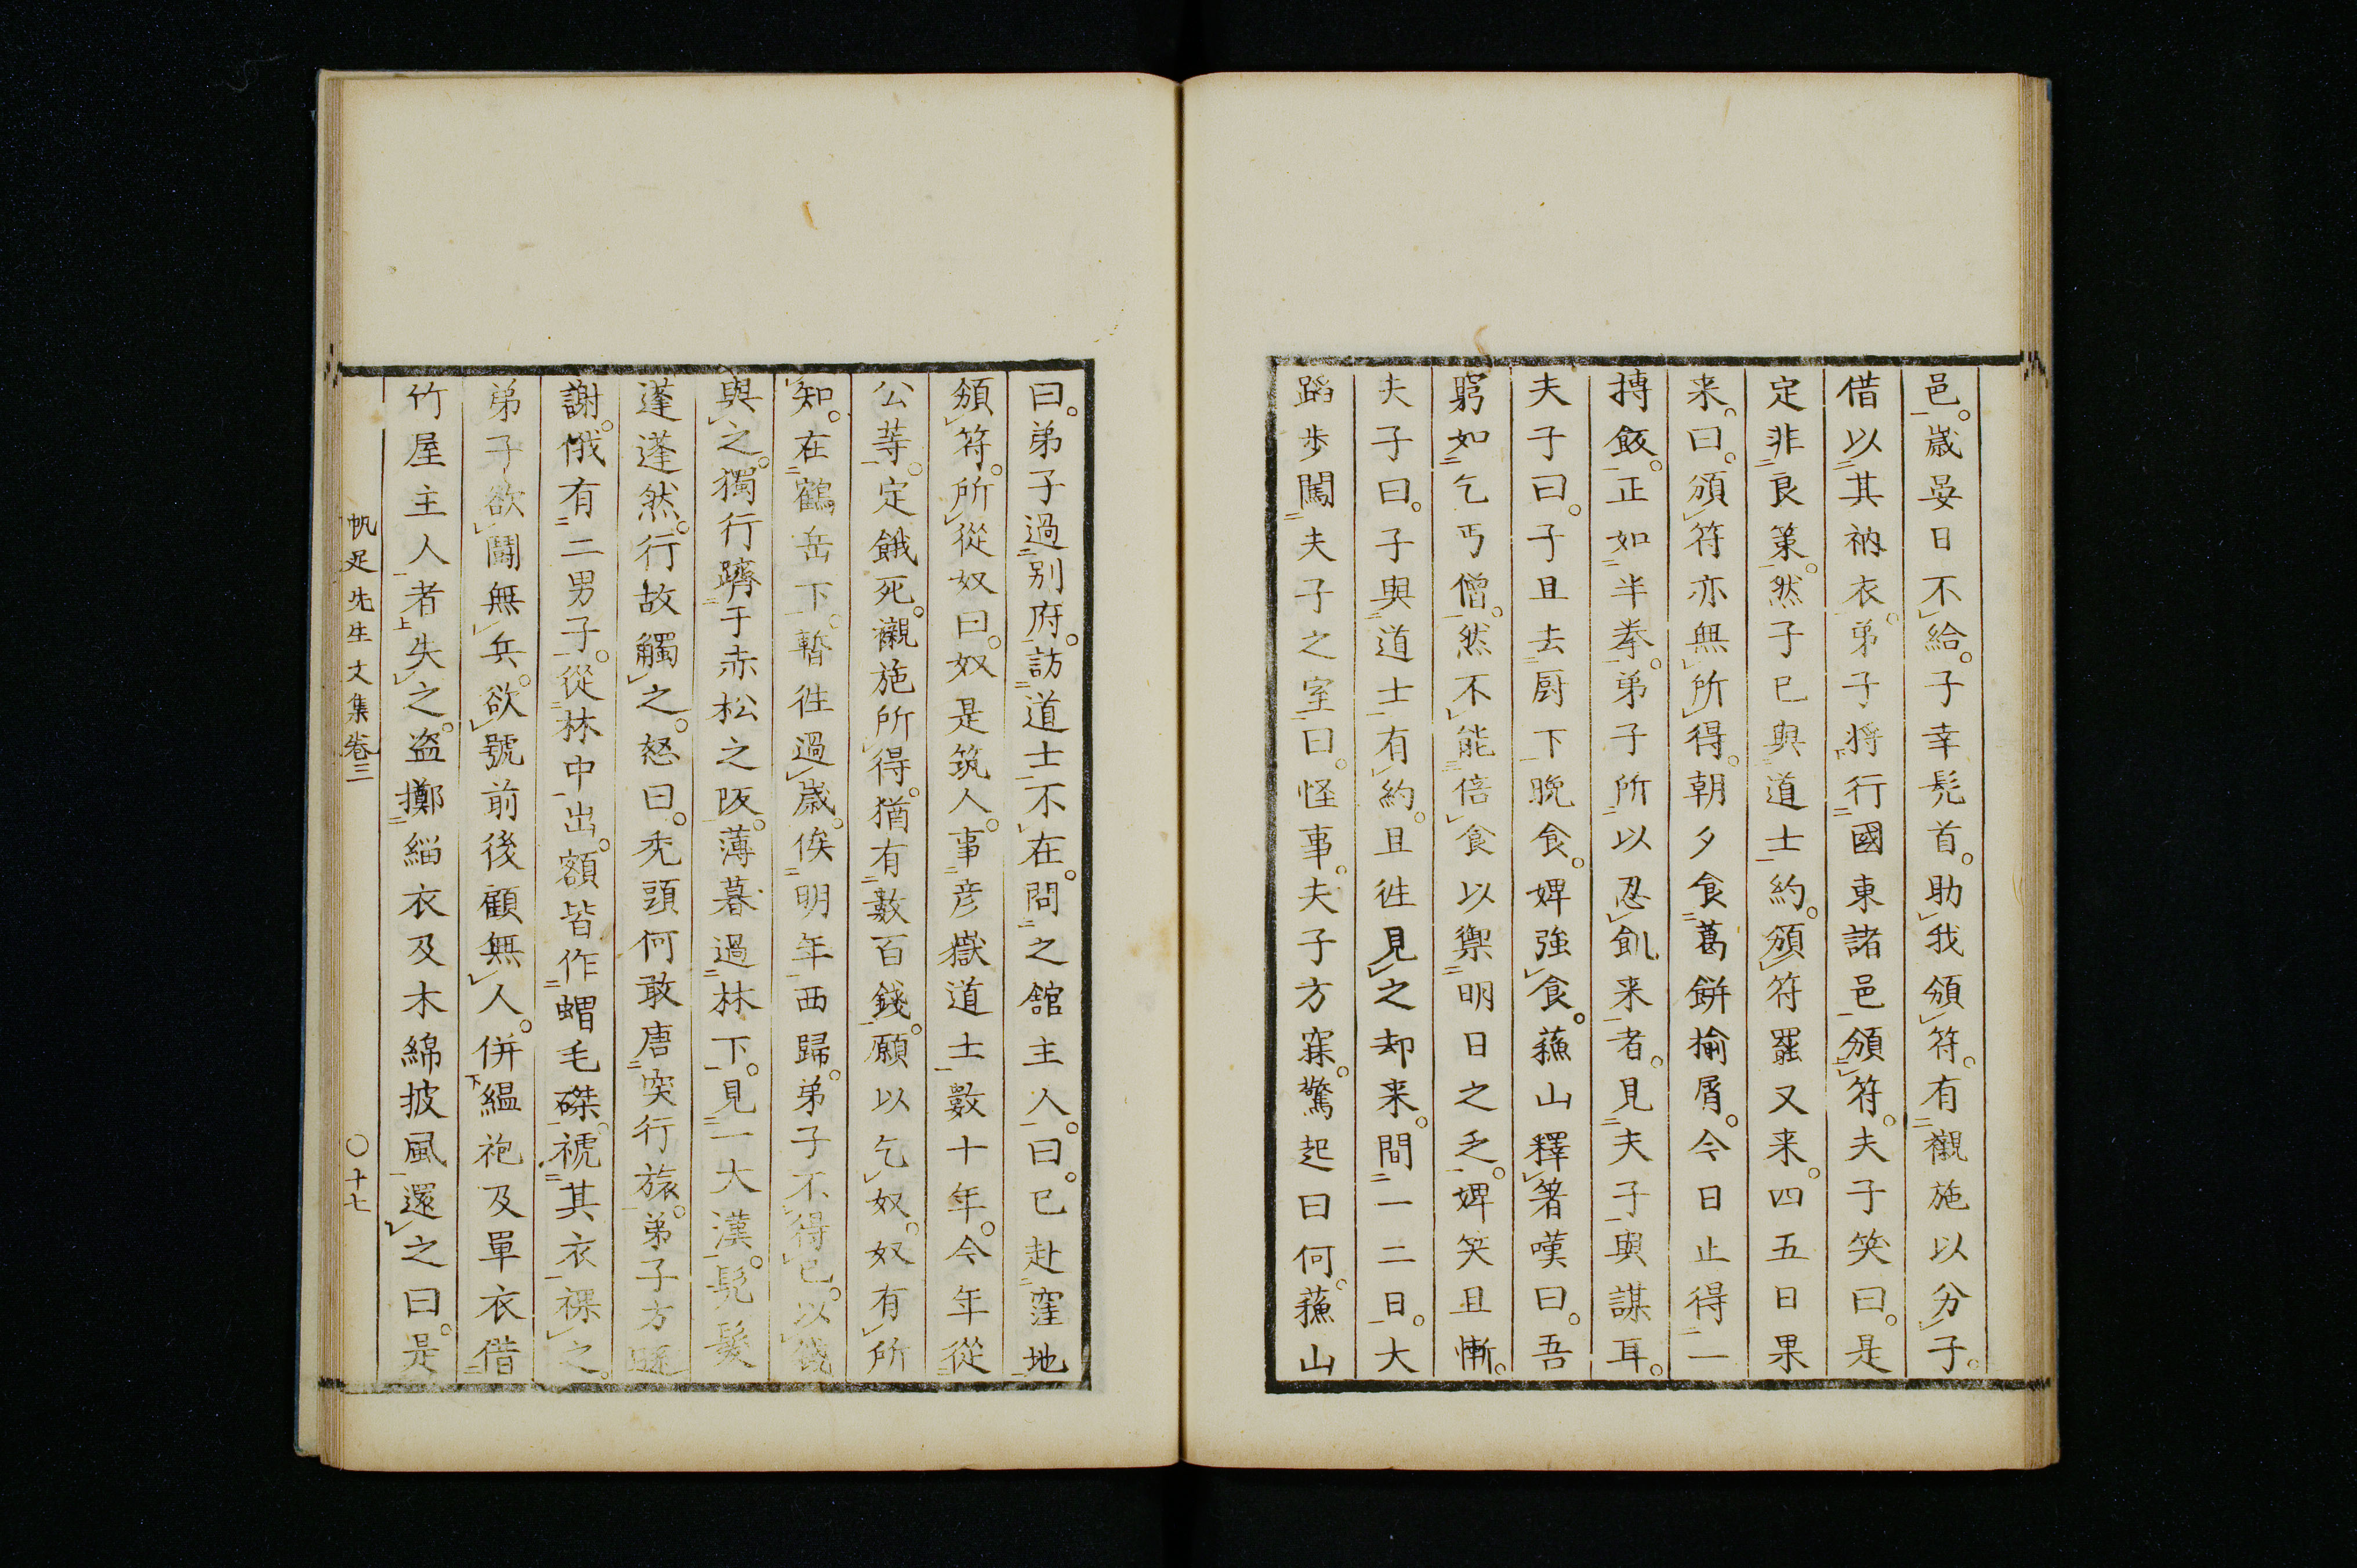 邑。歳晏日不給。子幸髡首。助我頒符。有襯施以分子。
借以其衲衣。弟子將行國東諸邑頒符。夫子笑曰。是
定非良策。然子已與道士約。頒符罷又来。四五日果
来。曰。頒符亦無所得。朝夕食葛餅揄屑。今日止得一
摶飯。正如半拳。弟子所以忍飢来者。見夫子與謀耳。
夫子曰。子且去厨下晩食。婢強食。蘓山釋箸嘆曰。吾
窮如乞丐僧。然不能倍食以禦明日之乏。婢笑且慚。
夫子曰。子與道士有約。且徃見之却来。間一二日。大
蹈歩闖夫子之室。曰。怪事。夫子方寐。驚起曰何。蘓山
曰。弟子過別府。訪道士不在。問之舘主人。曰。已赴窪地
頒符。所從奴曰。奴是筑人。事彦嶽道士數十年。今年從
公等。定餓死。襯施所得。猶有數百錢。願以乞奴。奴有所
知。在鶴岳下。暫徃過歳。俟明年西歸。弟子不得已。以錢
與之。獨行躋于赤松之阪。薄暮過林下。見一大漢。髡髮
蓬蓬然。行故觸之。怒曰。禿頭何敢唐突行旅。弟子方
謝。俄有二男子。從林中出。額皆作蝟毛磔。褫其衣裸之。
弟子欲鬪無兵。欲號前後顧無人。併縕袍及單衣借
竹屋主人者失之。盗擲緇衣及木綿披風還之曰。是
帆足先生文集卷三
〇十七